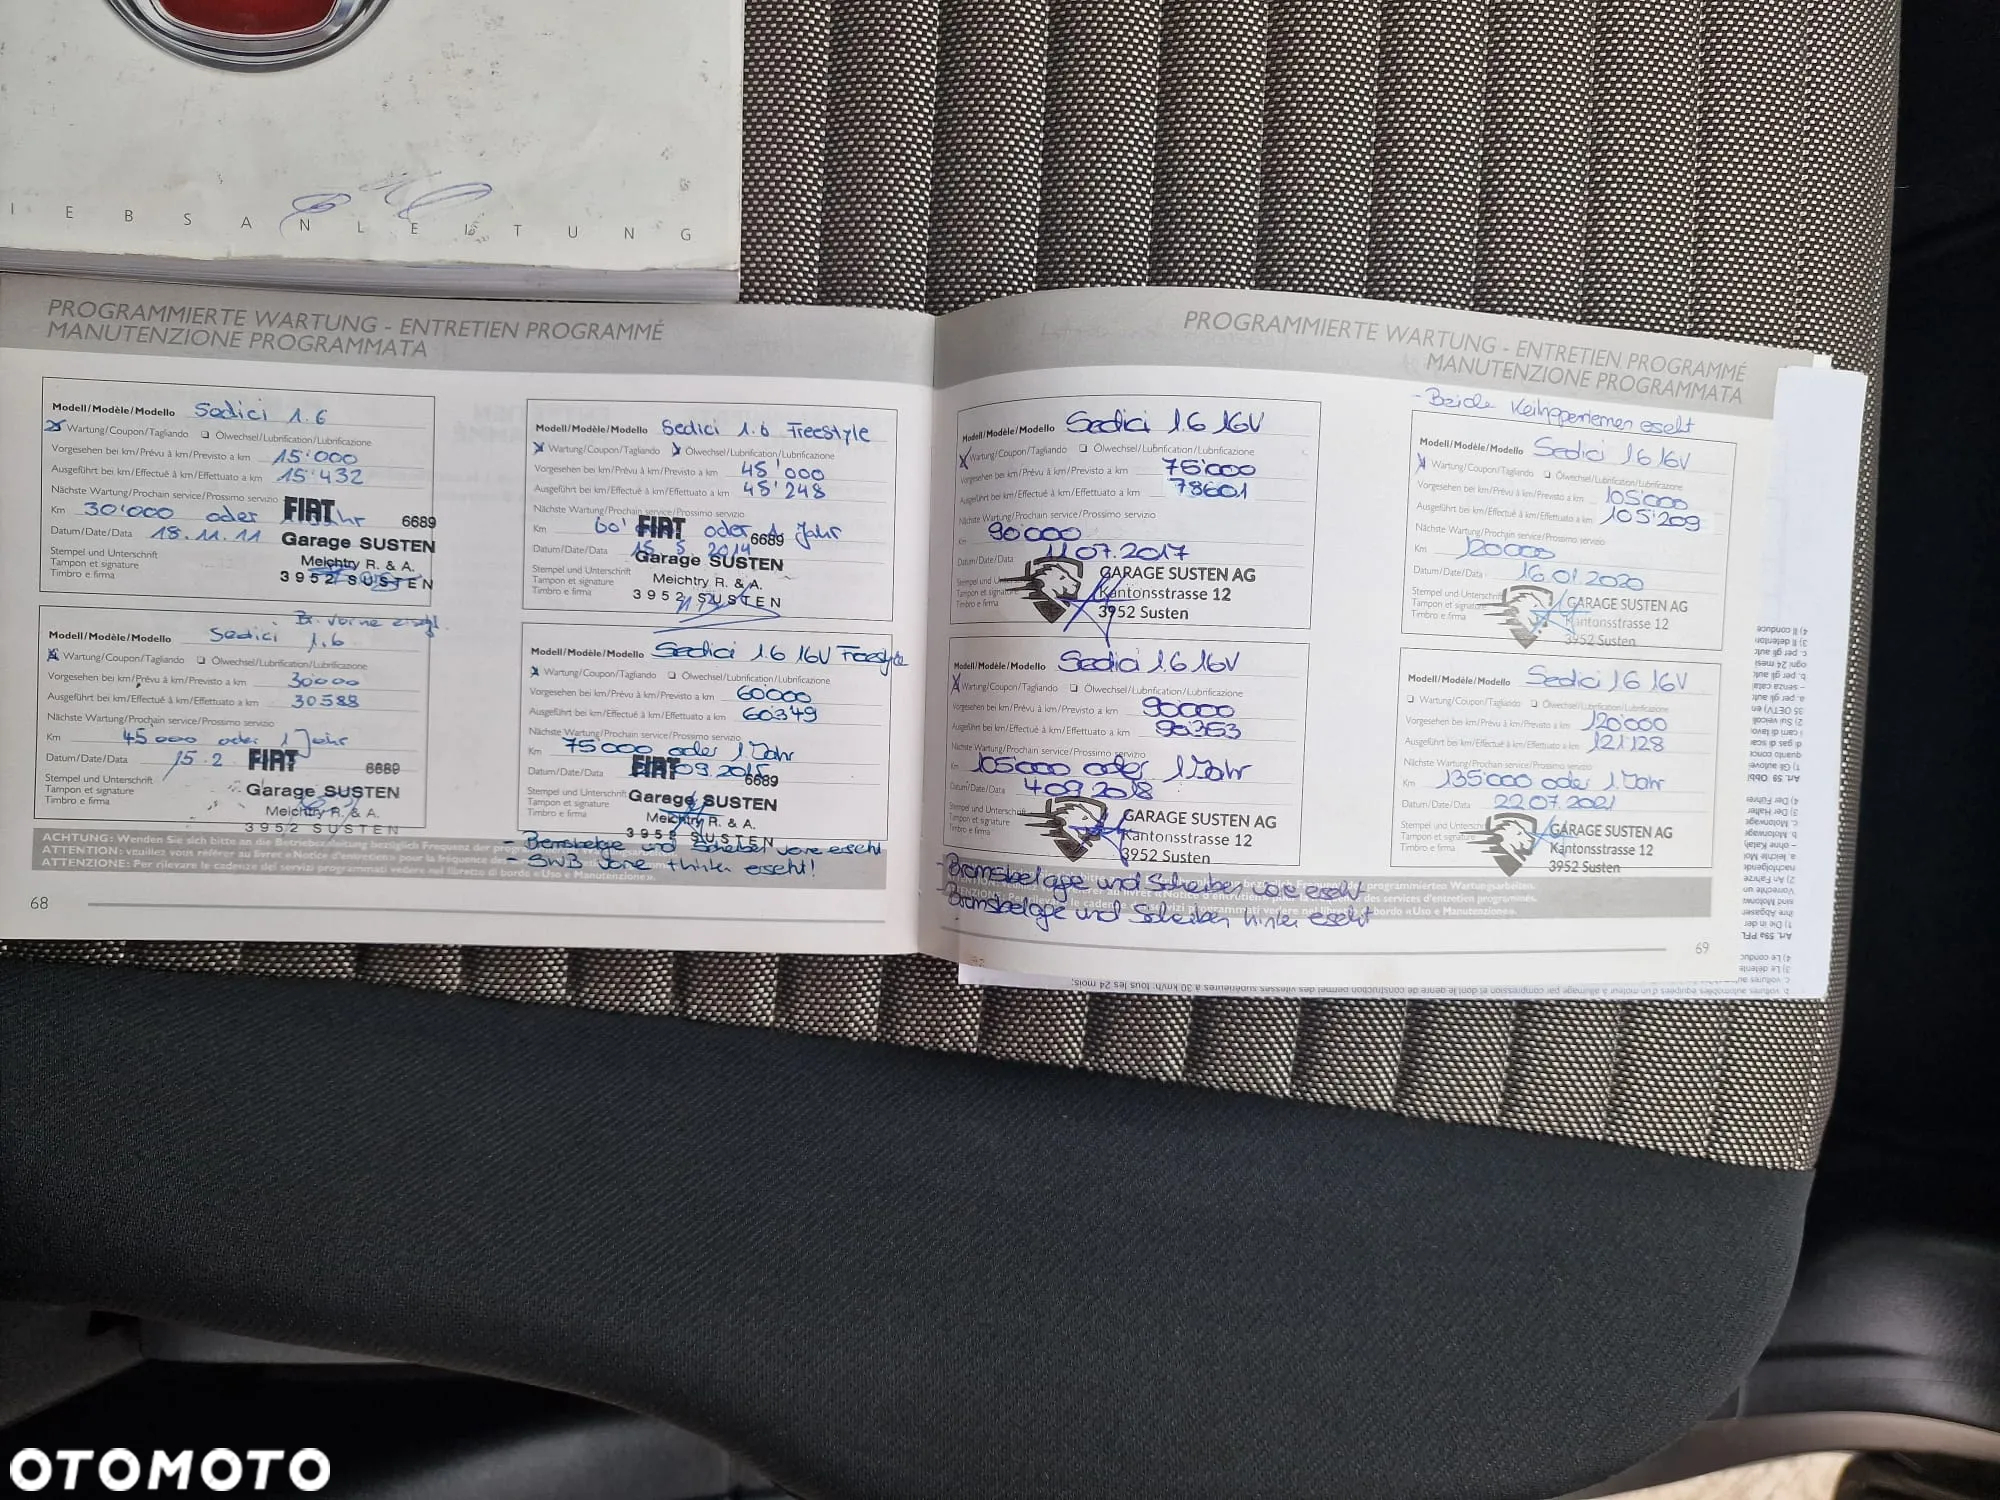 I E B S A N L E I T U N G
PROGRAMMIERTE WARTUNG - ENTRETIEN PROGRAMMÉ
MANUTENZIONE PROGRAMMATA
Modell/Modèle/Modello Sedici 1.6
Wartung/Coupon/Tagliando Ölwechsel/Lubrification/Lubrificazione
Vorgesehen bei km/Prévu à km/Previsto a km 15'000
Ausgeführt bei km/Effectué à km/Effettuato a km 15'432
Nächste Wartung/Prochain service/Prossimo servizio
Km 30'000 oder
Datum/Date/Data 18.11.11
Stempel und Unterschrift
Tampon et signature
Timbro e firma
FIAT 6689
Garage SUSTEN
Meichtry R. & A.
3952 SUSTEN
Modell/Modèle/Modello Sedici 1.6
Wartung/Coupon/Tagliando Ölwechsel/Lubrification/Lubrificazione
Vorgesehen bei km/Prévu à km/Previsto a km 30000
Ausgeführt bei km/Effectué à km/Effettuato a km 30588
Nächste Wartung/Prochain service/Prossimo servizio
Km 45000 oder 1 Jahr
Datum/Date/Data 15.2
Stempel und Unterschrift
Tampon et signature
Timbro e firma
FIAT 6689
Garage SUSTEN
Meichtry R. & A.
3952 SUSTEN
Modell/Modèle/Modello Sedici 1.6 Freestyle
Wartung/Coupon/Tagliando Ölwechsel/Lubrification/Lubrificazione
Vorgesehen bei km/Prévu à km/Previsto a km 45'000
Ausgeführt bei km/Effectué à km/Effettuato a km 45'248
Nächste Wartung/Prochain service/Prossimo servizio
Km 60' oder 1 Jahr
Datum/Date/Data 15.5.2014
Stempel und Unterschrift
Tampon et signature
Timbro e firma
FIAT 6689
Garage SUSTEN
Meichtry R. & A.
3952 SUSTEN
Modell/Modèle/Modello Sedici 1.6 16V Freestyle
Wartung/Coupon/Tagliando Ölwechsel/Lubrification/Lubrificazione
Vorgesehen bei km/Prévu à km/Previsto a km 60000
Ausgeführt bei km/Effectué à km/Effettuato a km 60349
Nächste Wartung/Prochain service/Prossimo servizio
Km 75000 oder 1 Jahr
Datum/Date/Data 09.2015
Stempel und Unterschrift
Tampon et signature
Timbro e firma
FIAT 6689
Garage SUSTEN
Meichtry R. & A.
3952 SUSTEN
- Bremsbeläge und Scheiben vorne ersetzt
- SWB vorne + hinten ersetzt!
ACHTUNG: Wenden Sie sich bitte an die Betriebsanleitung bezüglich Frequenz der
ATTENTION: veuillez vous référer au livret «Notice d'entretien» pour la fréquence des
ATTENZIONE: Per rilevare le cadenze dei servizi programmati vedere nel libretto di bordo «Uso e Manutenzione».
68
PROGRAMMIERTE WARTUNG - ENTRETIEN PROGRAMMÉ
MANUTENZIONE PROGRAMMATA
Modell/Modèle/Modello Sedici 1.6 16V
Wartung/Coupon/Tagliando Ölwechsel/Lubrification/Lubrificazione
Vorgesehen bei km/Prévu à km/Previsto a km 75'000
Ausgeführt bei km/Effectué à km/Effettuato a km 78601
Nächste Wartung/Prochain service/Prossimo servizio
Km 90'000
Datum/Date/Data 11.07.2017
GARAGE SUSTEN AG
Kantonsstrasse 12
3952 Susten
Modell/Modèle/Modello Sedici 1.6 16V
Wartung/Coupon/Tagliando Ölwechsel/Lubrification/Lubrificazione
Vorgesehen bei km/Prévu à km/Previsto a km 90000
Ausgeführt bei km/Effectué à km/Effettuato a km 90353
Nächste Wartung/Prochain service/Prossimo servizio
Km 105'000 oder 1 Jahr
Datum/Date/Data 4.09.2018
GARAGE SUSTEN AG
Kantonsstrasse 12
3952 Susten
- Bremsbeläge und Scheiben vorne ersetzt
- Bremsbeläge und Scheiben hinten ersetzt
- Beide Keilrippenriemen ersetzt
Modell/Modèle/Modello Sedici 1.6 16V
Wartung/Coupon/Tagliando Ölwechsel/Lubrification/Lubrificazione
Vorgesehen bei km/Prévu à km/Previsto a km 105'000
Ausgeführt bei km/Effectué à km/Effettuato a km 105'209
Nächste Wartung/Prochain service/Prossimo servizio
Km 120000
Datum/Date/Data 16.01.2020
Stempel und Unterschrift
Tampon et signature
Timbro e firma
GARAGE SUSTEN AG
Kantonsstrasse 12
3952 Susten
Modell/Modèle/Modello Sedici 1.6 16V
Wartung/Coupon/Tagliando Ölwechsel/Lubrification/Lubrificazione
Vorgesehen bei km/Prévu à km/Previsto a km 120'000
Ausgeführt bei km/Effectué à km/Effettuato a km 121'128
Nächste Wartung/Prochain service/Prossimo servizio
Km 135'000 oder 1 Jahr
Datum/Date/Data 22.07.2021
Stempel und Unterschrift
Tampon et signature
Timbro e firma
GARAGE SUSTEN AG
Kantonsstrasse 12
3952 Susten
69
OTOMOTO